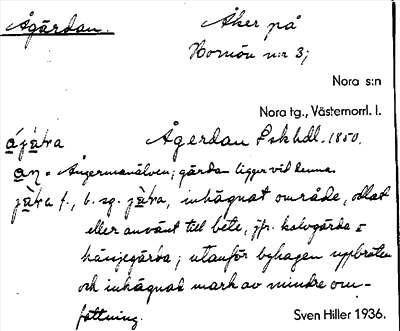 Ågärdan. Åker på
Hornön n:r 3;
Nora s:n
Nora tg., Västernorrl. l.
åjära Ågerdan Lskhdl. 1850.
an = Ångermanälven; gärdan ligger vid denna.
jära f., b. sg. jära, inhägnat område, odlat
eller använt till bete, jfr. kalvgärda
hässjegärda; utanför byhagen uppbruten
och inhägnad mark av mindre om-
fattning.
Sven Hiller 1936.